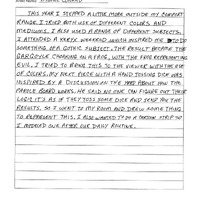 THIS YEAR I STEPPED A LITTLE MORE OUTSIDE MY COMFORT
RANGE. I TRIED WITH USE OF DIFFERENT COLORS AND
MEDIUMS, I ALSO USED A RANGE OF DIFFERENT SUBJECTS.
I ATTENDED A WEEKEND WHICH INSPIRED ME TO DO
SOMETHING OF A GOTHIC SUBJECT. THE RESULT BECAME THE
GARGOYLE CHEWING ON A FACE, WITH THE FACE REPRESENTING
EVIL, I TRIED TO BRING THIS TO THE VIEWER WITH THE USE
OF COLORS. MY NEXT PIECE WITH A HAND TOSSING DICE WAS
INSPIRED BY A DISCUSSION ON THE YARD ABOUT HOW THE
PAROLE BOARD WORKS. HE SAID NO ONE CAN FIGURE OUT THEIR
LOGIC IT'S AS IF THEY TOSS SOME DICE AND SEND YOU THE
RESULTS, SO I WENT TO MY ROOM AND DREW SOMETHING
TO REPRESENT THIS. I ALSO WANTED TO DO A CARTOON STRIP SO
I MODELED ONE AFTER OUR DAILY ROUTINE.